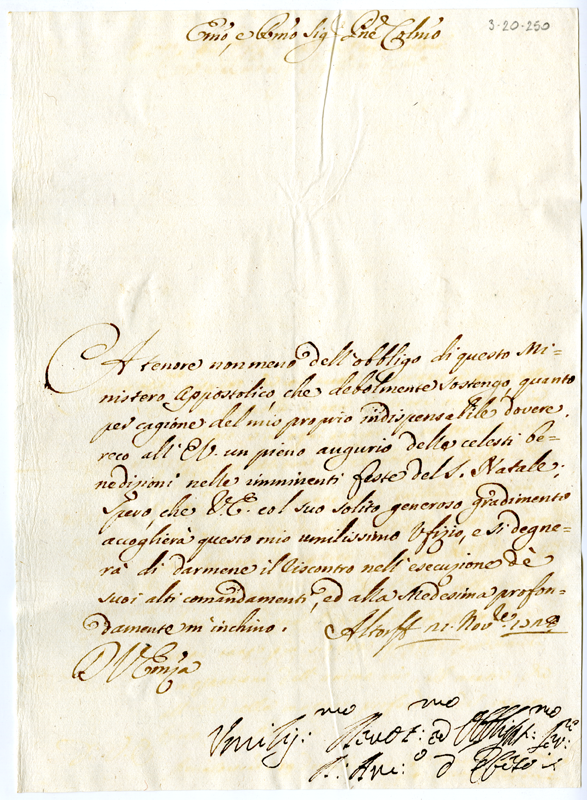 3-20-250
Emo, e Rmo Sig: Pne Colmo
A tenore non meno dell'obbligo di questo Mi=
nistero Appostolico, che debolmente sostengo, quanto
per cagione del mio proprio indispensabile dovere,
reco all'E.V. un pieno augurio delle celesti be=
nedizioni nelle imminenti feste del S. Natale;
Spero, che V.E. col suo solito generoso gradimento
accoglierà questo mio umilissimo Ufizio, e si degne=
rà di darmene il riscontro nell'esecuzione dè
suoi alti comandamenti, ed alla Medesima profon=
damente m'inchino. Altorff 21. Nov.re
D V Emza
Umiliss:mo Devot:mo ed Obbligat:mo Ser:re